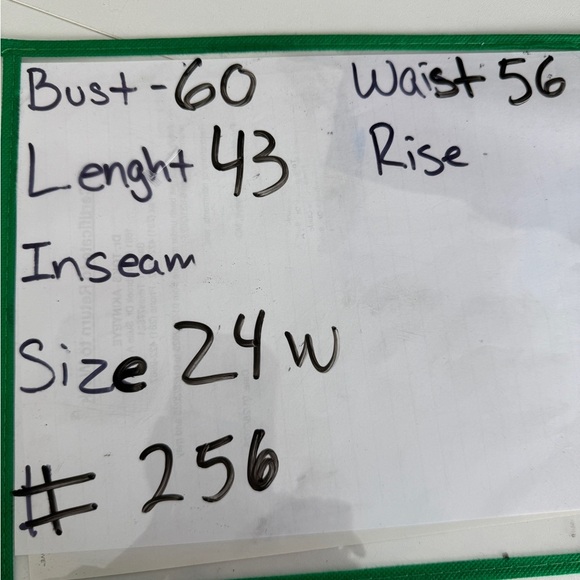 Bust - 60 Waist 56
Lenght 43 Rise
Inseam
Size 24 W
# 256